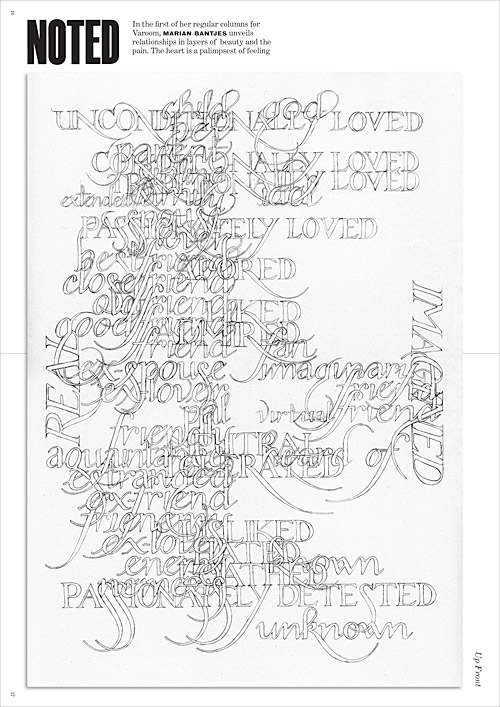 NOTED
In the first of her regular columns for
Varoom, MARIAN BANTJES unveils
relationships in layers of beauty and the
pain. The heart is a palimpsest of feeling
child god
UNCONDITIONALLY LOVED
parent
CONDITIONALLY LOVED
TRADITIONALLY LOVED
extended family
PASSIONATELY LOVED
lover
best friend
ADORED
close friend
old friend
LIKED
good friend
ADMIRED
friend fan
REAL
IMAGINED
ex-spouse imaginary
ex-lover friend
pal virtual friend
friendly
NEUTRAL
aquaintance heard of
estranged
ex-friend
frienemy
DISLIKED
ex-lover
HATED
enemy known
LOATHED
PASSIONATELY DETESTED
unknown
Up Front